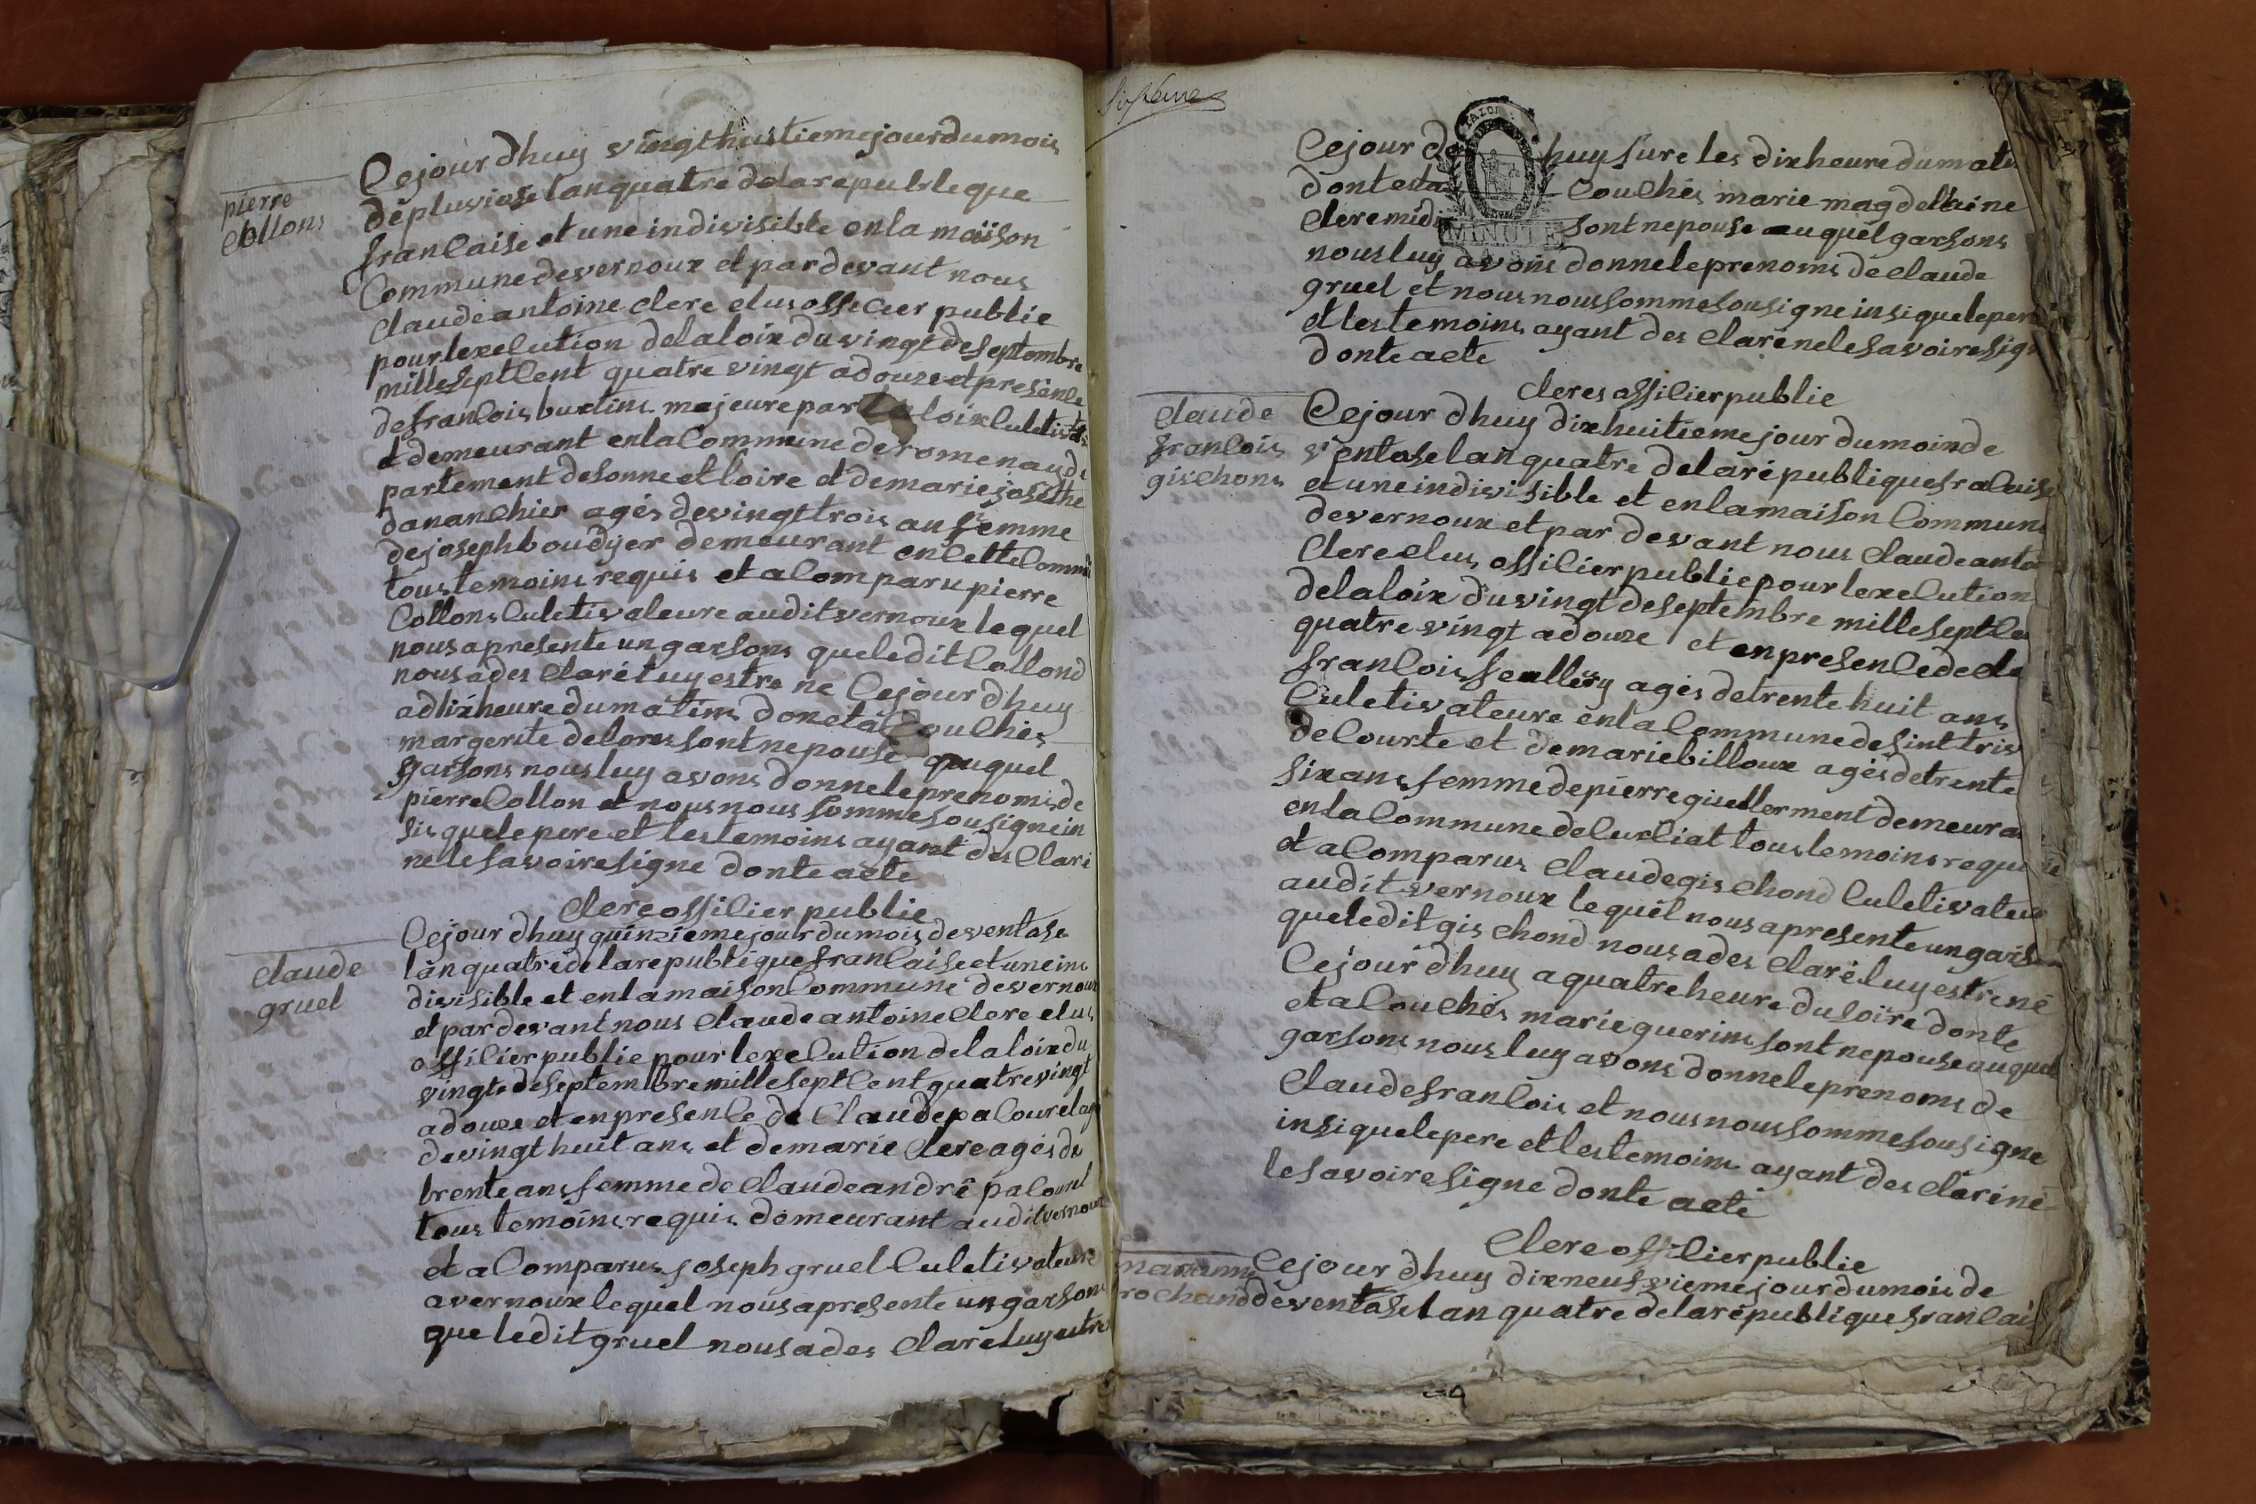 pierre
Collons
Cejour dhuy vingt huitieme jour du mois
de pluviose lan quatre de la republeque
franCaise et une indivisible en la maison
Commune de vernoux et par devant nous
Claude antoine Clere elus offeCier public
pour lexeCution de la loix du vingt de septembre
mille sept Cent quatre vingt a douze et presenCe
de franCois burtins majeure par la loix Culetivat
et demeurant en la Commune de romenau de
partement de sonne et loire et de marie josethe
dananChier agés de vingt trois an femme
de joseph boudyer demeurant en Cette Commu
tous temoins requis et a Comparu pierre
Collons Culetivaleure audit vernoux lequel
nous apresente un garsons que le dit Collond
nous a des Claré luy estre né Cejour dhuy
a dix heure du matins donct a CouChes
margerite delores sont nepouse auquel
garsons nous luy avons donne le prenoms de
pierre Collon et nous nous somme sousigne in
sis que le pere et les temoins ayant des Clari
ne le savoire signe donte acte
Clere offiCier public
Claude
gruel
Cejour dhuy quinzieme jour du mois de ventose
lan quatre de la republique franCaise et une in
divisible et en la maison Commune de vernoux
et par devant nous Claude antoine Clere elus
offiCier public pour lexeCution de la loix du
vingt de septembre mille sept Cent quatre vingt
a douze et en presenCe de Claude paCourel ag
de vingt huit ans et de marie Clere agés de
trente ans femme de Claude andré paCourel
tous temoins requis demeurant audit vernoux
et a Comparus joseph gruel Culetivateure
a vernoux lequel nous apresente un garsons
que le dit gruel nous a des Claré luy estre
Cejour d huy sure les dix heure du mati
dont esta CouChés marie magdelaine
Clere midi sont nepouse auquel garsons
nous luy avons donne le prenoms de Claude
gruel et nous nous somme sousigne insi que le per
et les temoins ayant des Clare ne le savoire sign
donte acte
Cleres offiCier public
Claude
franCois
gisChons
Cejour dhuy dixhuitieme jour du mois de
ventose lan quatre de la république fraCaise
et une indivisible et en la maison Commune
de vernoux et par devant nous Claude anto
Clere elus offiCier public pour lexeCution
de la loix du vingt de septembre mille sept Ce
quatre vingt a douze et en presenCe de Cla
franCois feullery agés de trente huit ans
Culetivateure en la Commune de sint triv
de Courte et de marie billoux agés de trente
six ans femme de pierre gisellerment demeura
en la Commune de CurCiat tous temoins requi
et a Comparus Claude gisChond Culetivateur
audit vernoux lequel nous apresente un gars
que le dit gisChond nous a des Claré luy estre né
Cejour dhuy a quatre heure du soire donte
et a CouChés marie guerins sont nepouse auquel
garsons nous luy avons donne le prenoms de
Claude franCois et nous nous somme sousigne
insi que le pere et les temoins ayant des Clare né
le savoire signe donte acte
Clere offiCier public
mananne
roChand
Cejour dhuy dixneufvieme jour du mois de
de ventose lan quatre de la république franCais
MINUTE